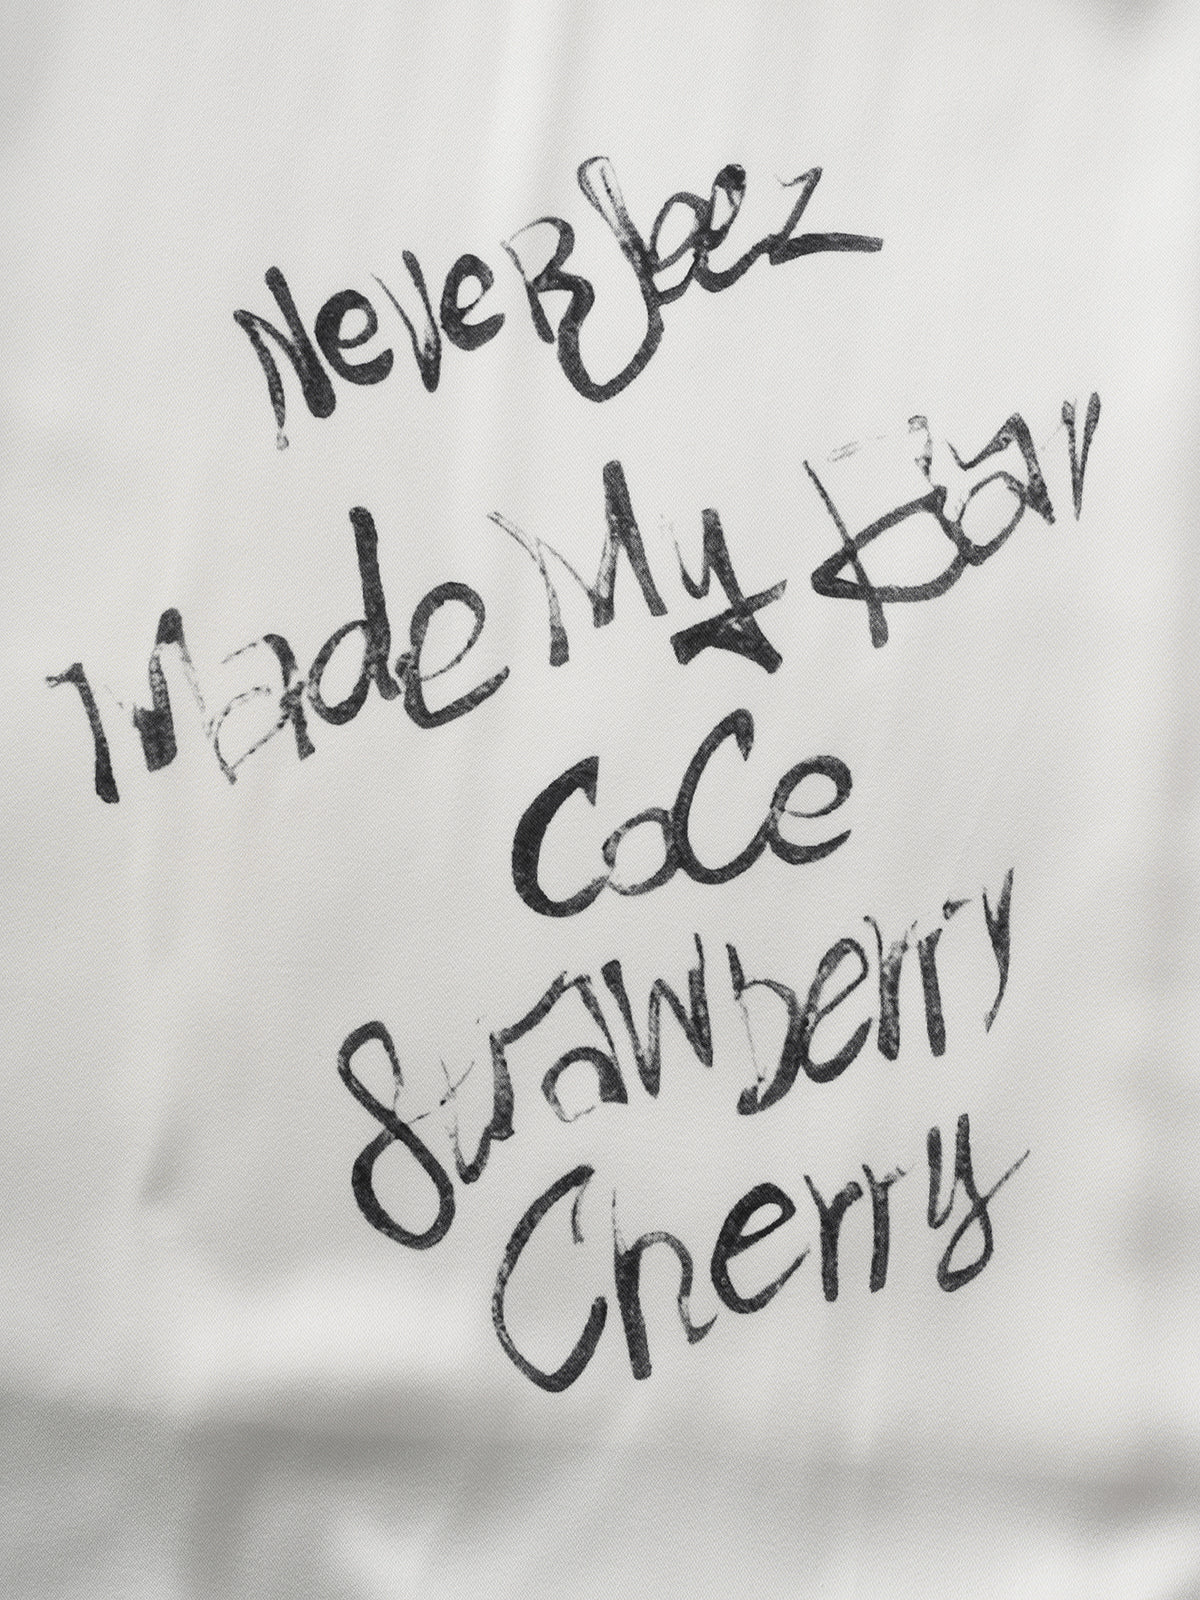 Never Jeez
Made My Bar
CoCe
Strawberry
Cherry